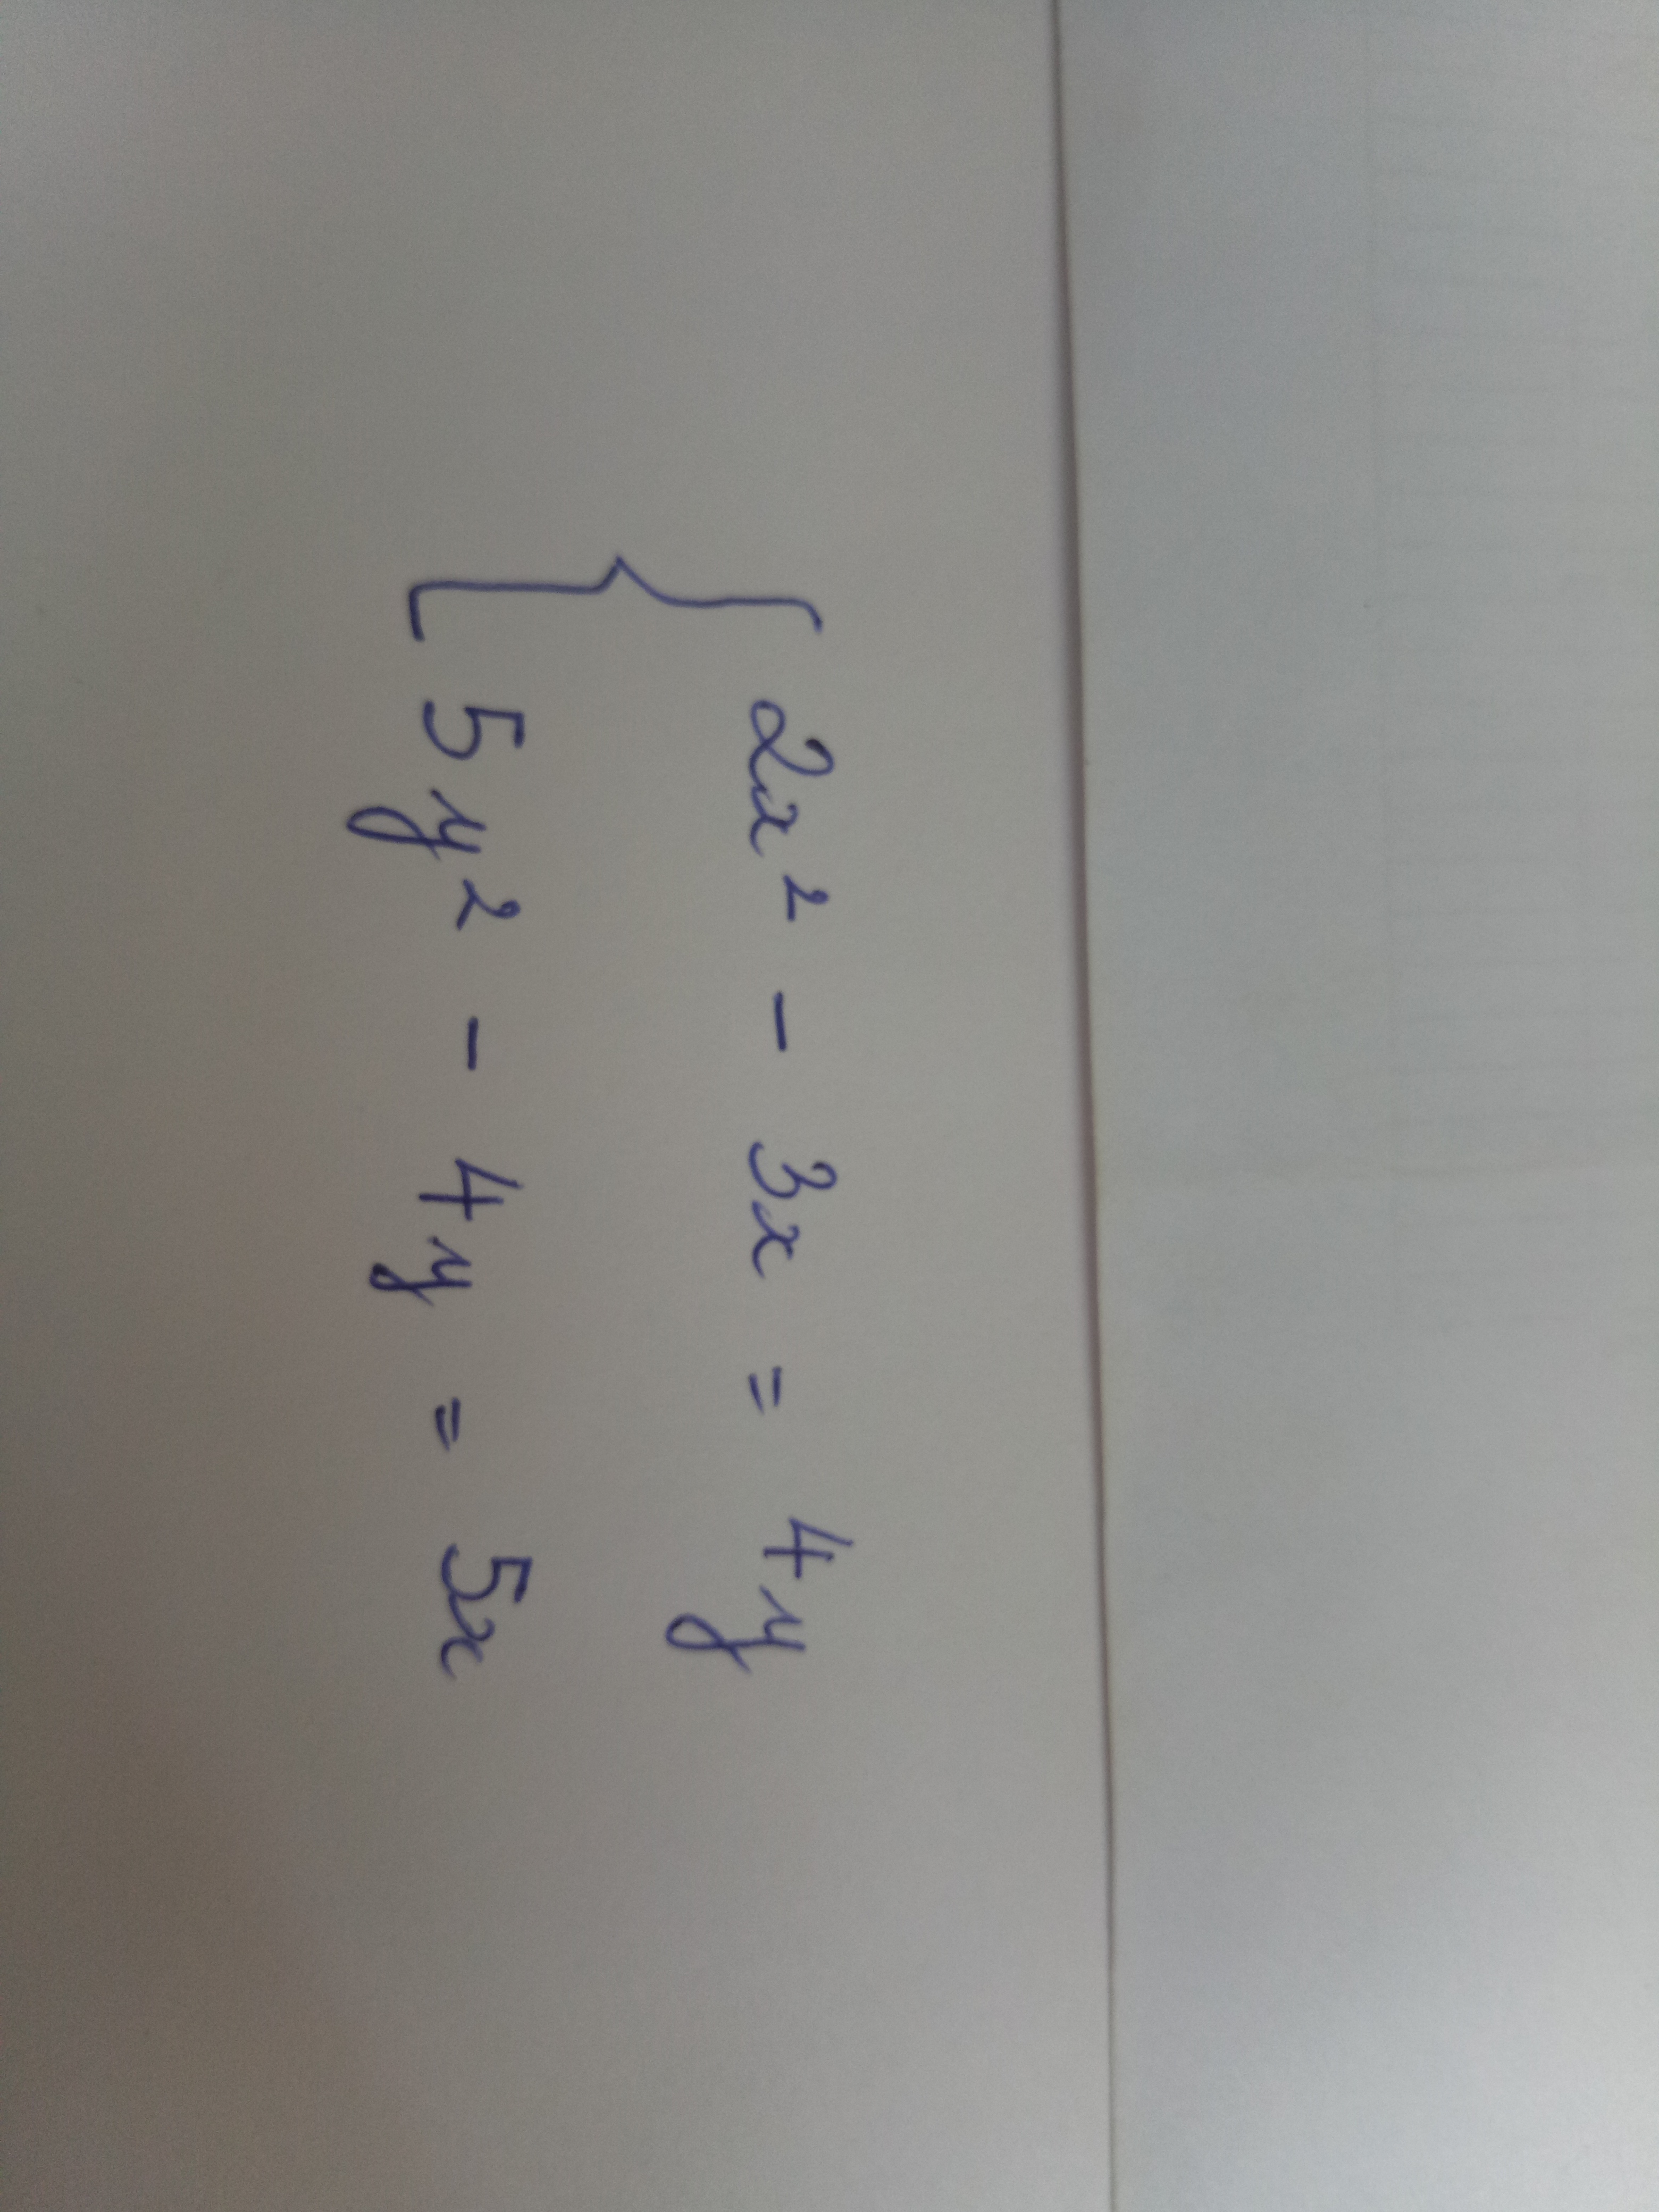 2x² - 3x = 4y
5y² - 4y = 5x